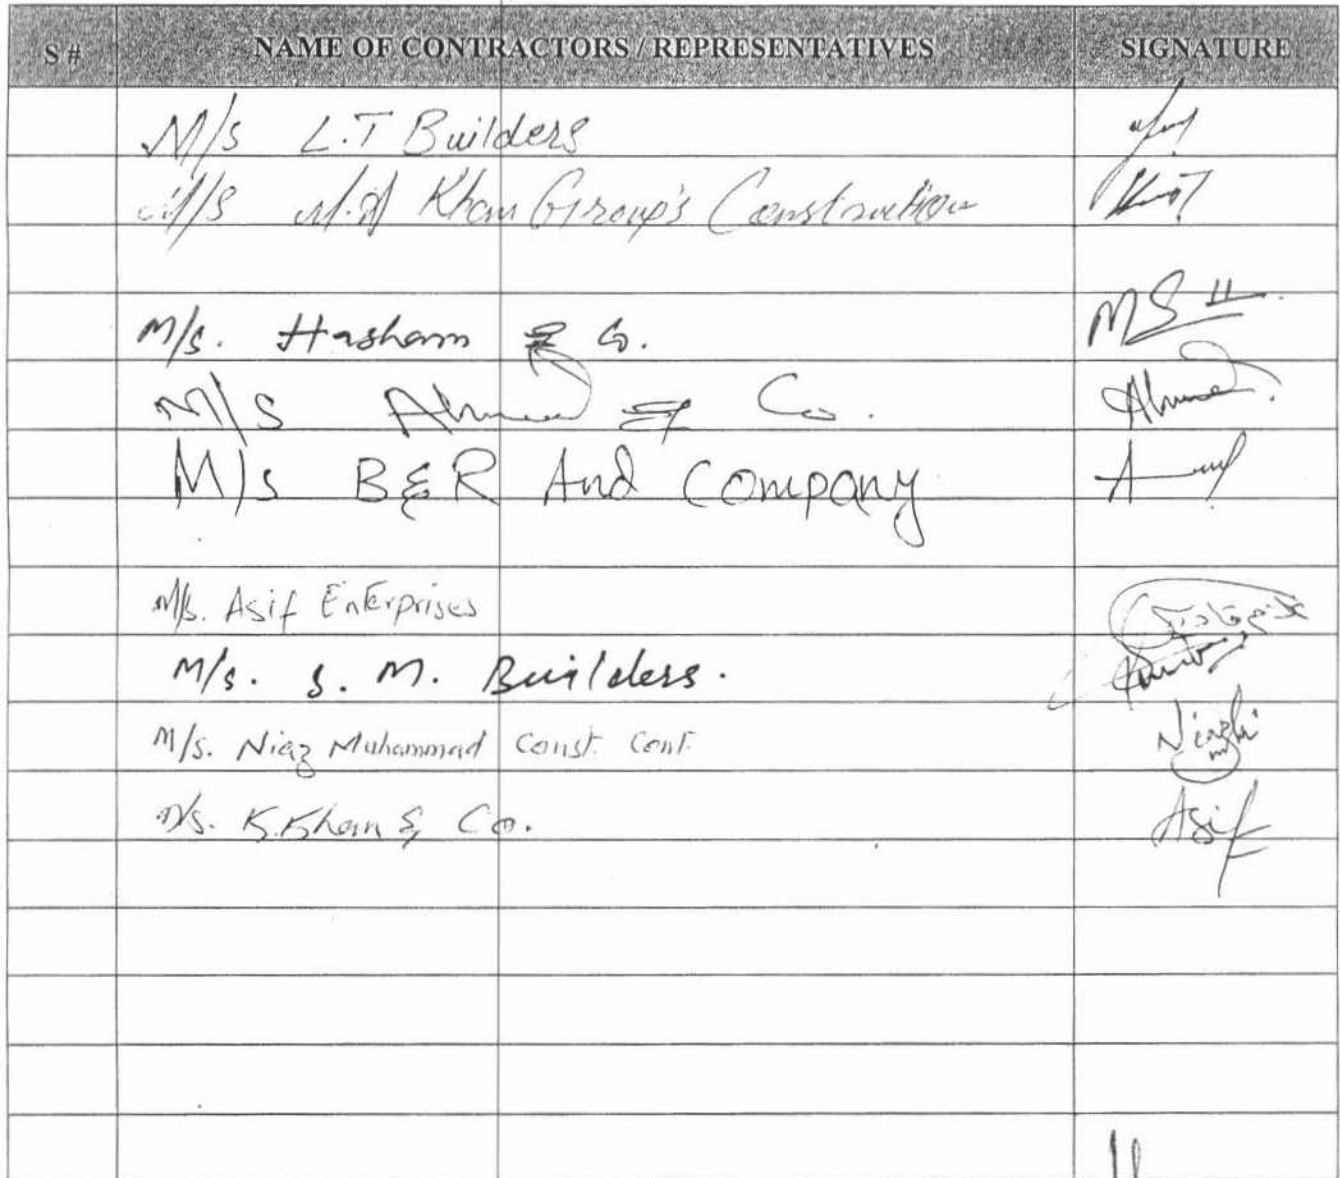 S # NAME OF CONTRACTORS / REPRESENTATIVES SIGNATURE
M/s L.T Builders
M/s M.A Khan Group's Construction
M/s. Hasham & Co. MS
M/S Ahmed & Co. Ahmed
M/s B&R And Company
M/s. Asif Enterprises
M/s. S. M. Builders.
M/s. Niaz Muhammad Const. Cont.
M/s. K.Khan & Co. Asif